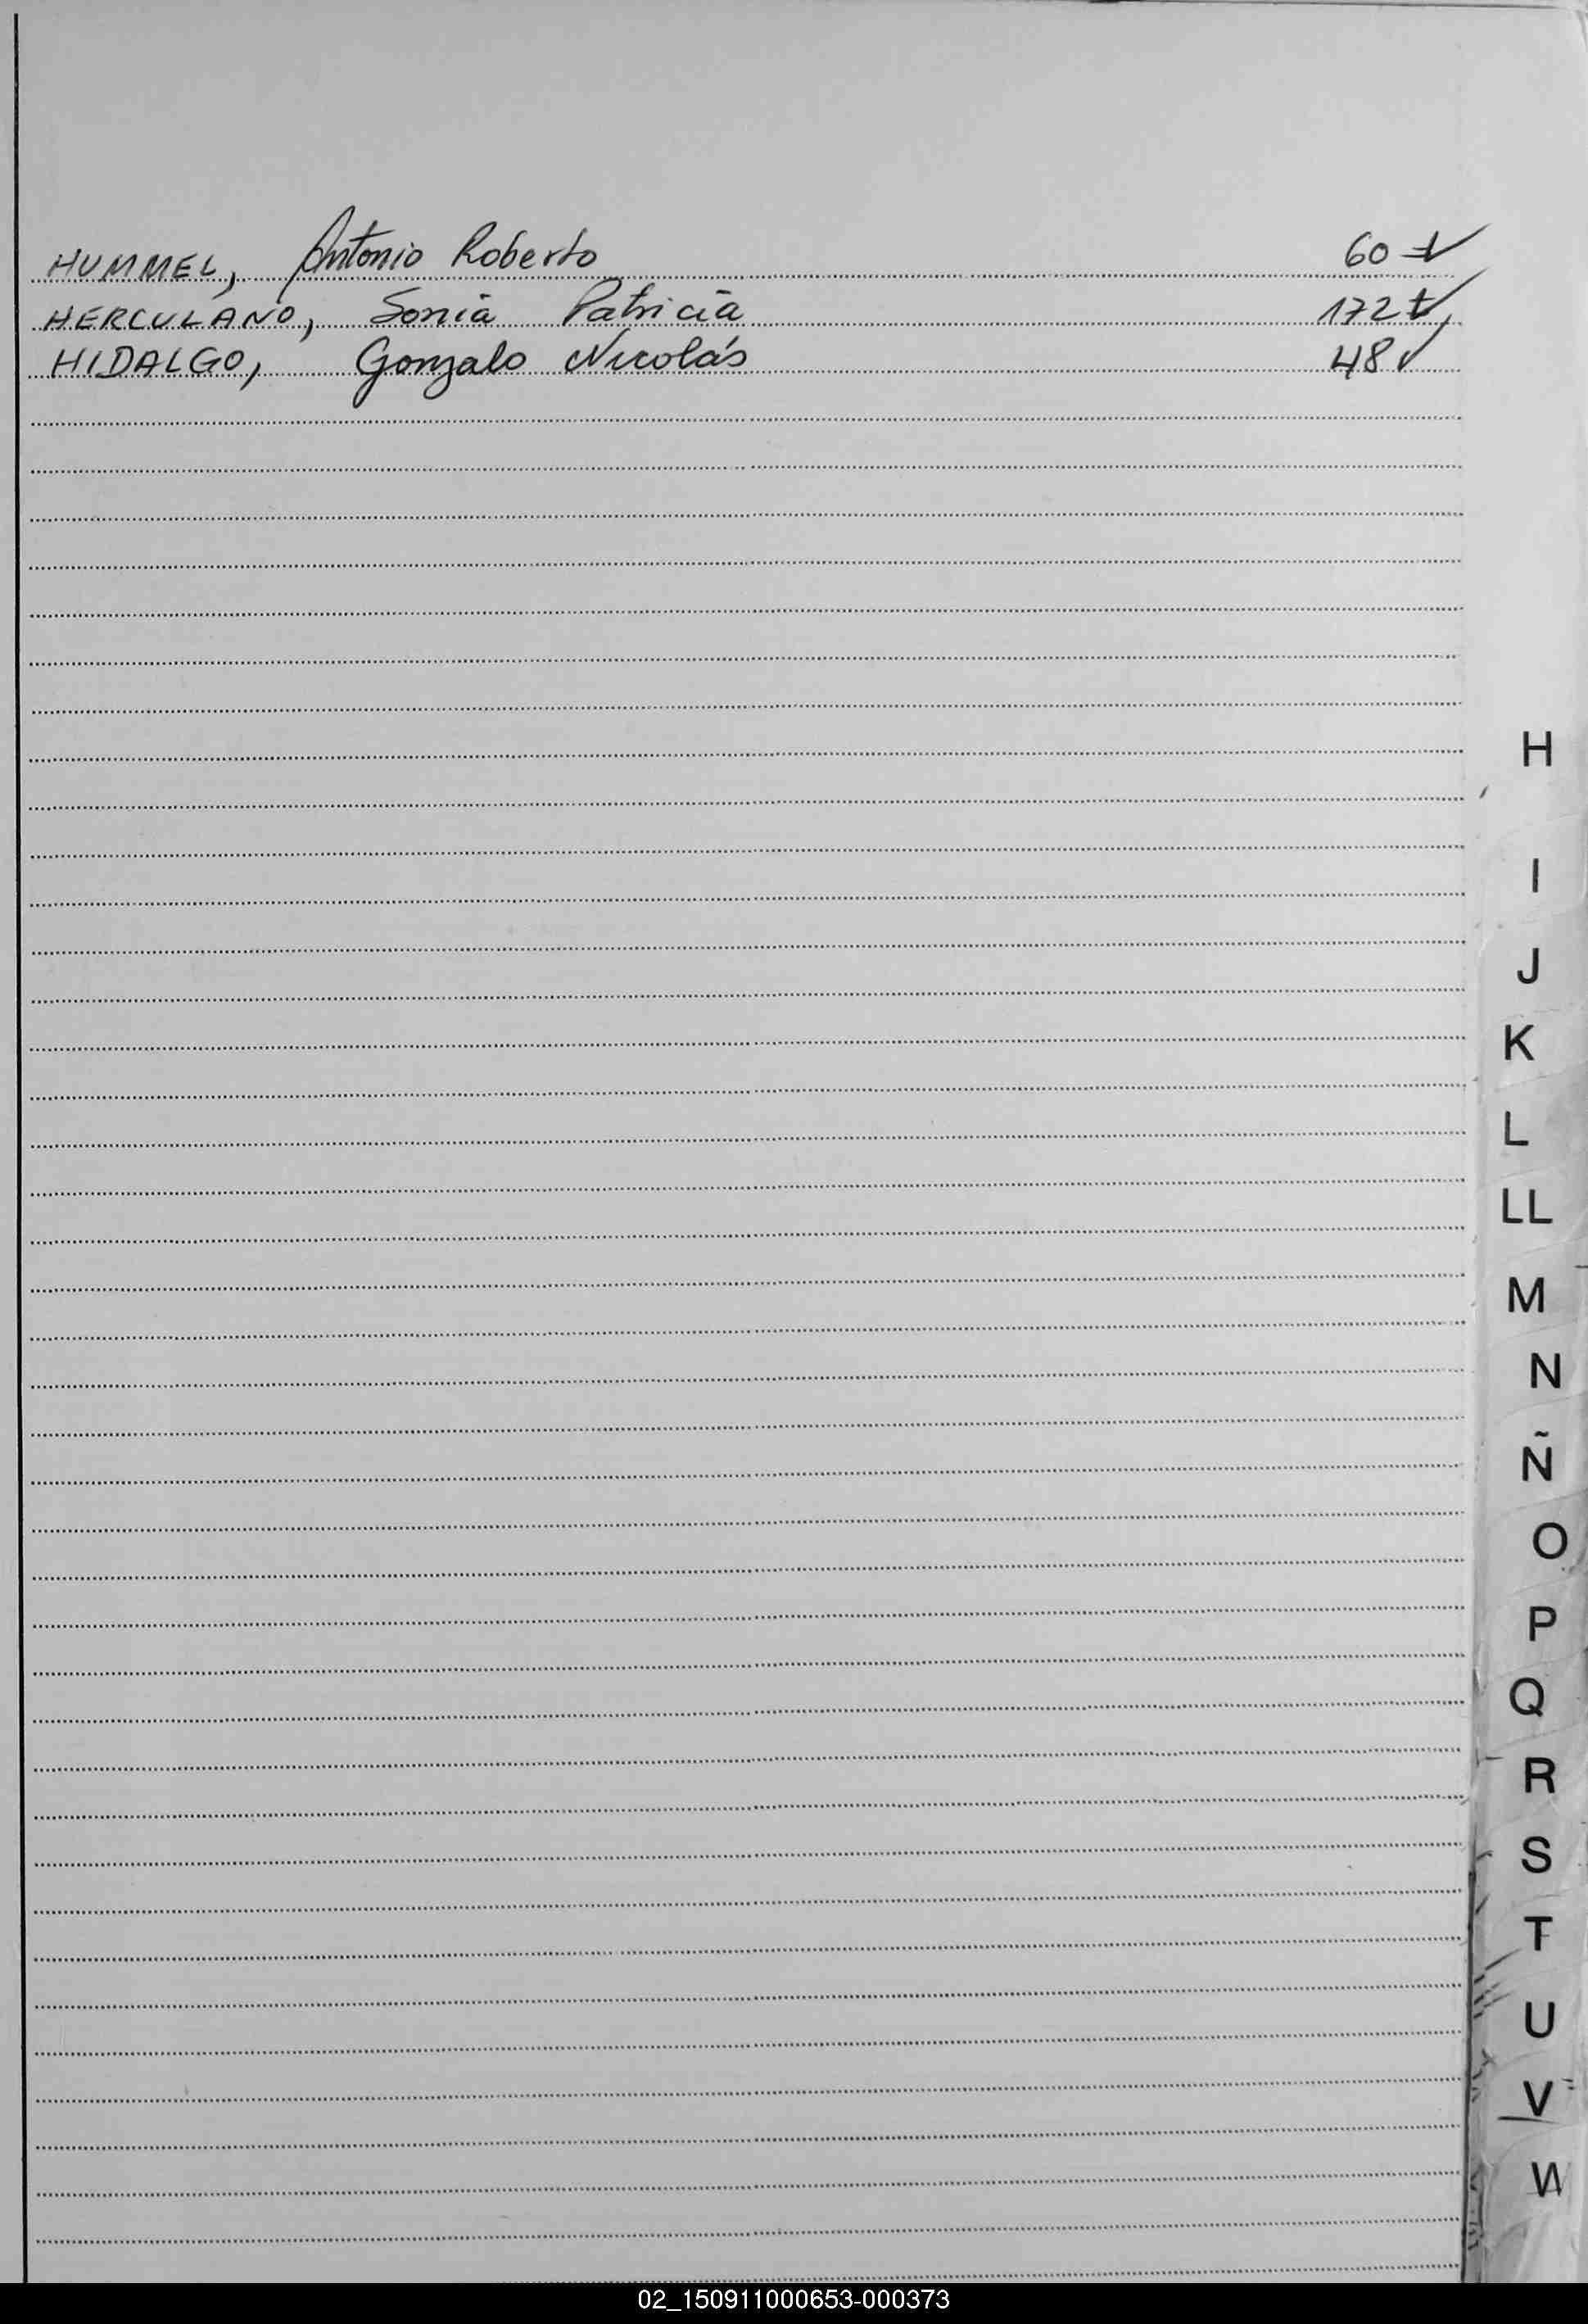 HUMMEL, Antonio Roberto 60 t ✓
HERCULANO, Sonia Patricia 172 t ✓
HIDALGO, Gonzalo Nicolás 48 ✓
H
I
J
K
L
LL
M
N
Ñ
O
P
Q
R
S
T
U
V
W
02_150911000653-000373